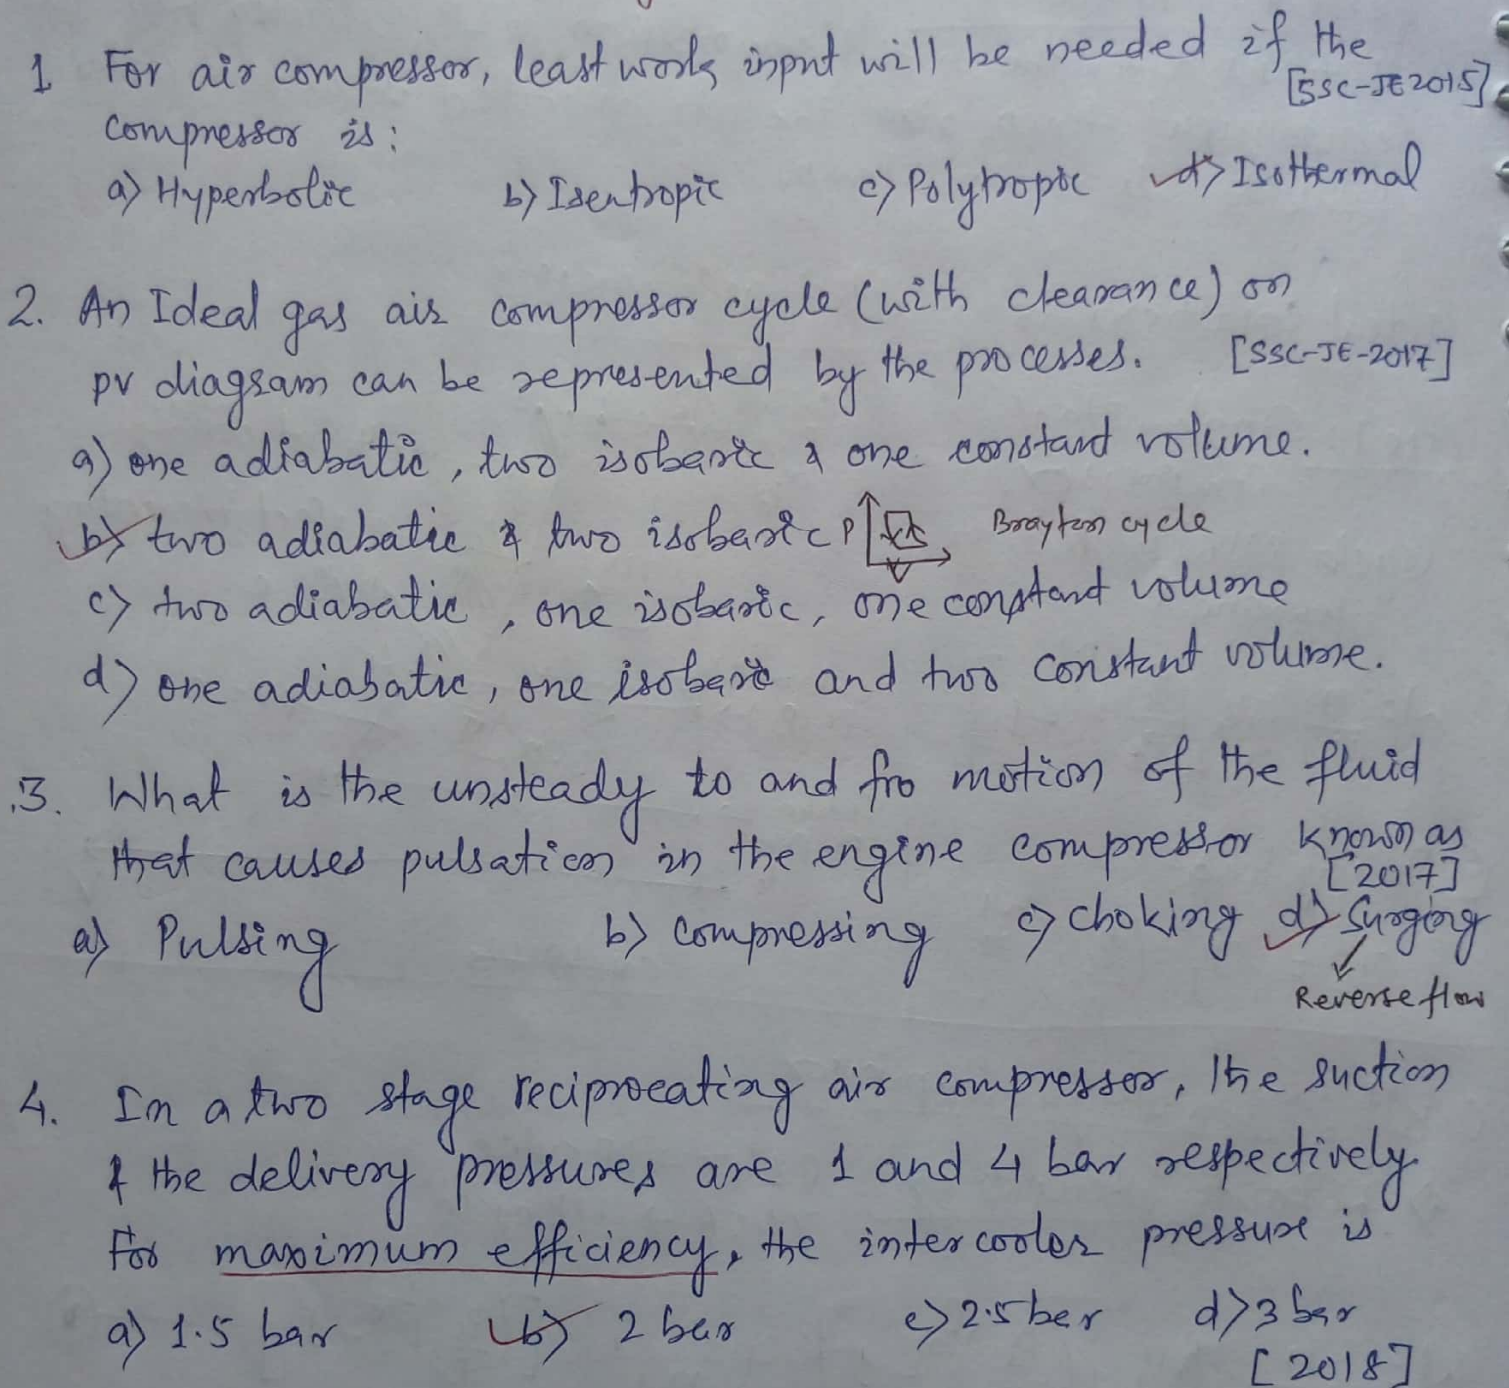 1 For air compressor, least work input will be needed if the
[SSC-JE 2015]
compressor is:
a) Hyperbolic b) Isentropic c) Polytropic d) Isothermal
2. An Ideal gas air compressor cycle (with clearance) on
pv diagram can be represented by the processes. [SSC-JE-2017]
a) one adiabatic, two isobaric & one constant volume.
b) two adiabatic & two isobaric P V Brayton cycle
c) two adiabatic, one isobaric, one constant volume
d) one adiabatic, one isobaric and two constant volume.
3. What is the unsteady to and fro motion of the fluid
that causes pulsation in the engine compressor known as
[2017]
a) Pulsing b) compressing c) choking d) Surging
Reverse flow
4. In a two stage reciprocating air compressor, the suction
& the delivery pressures are 1 and 4 bar respectively
for maximum efficiency, the intercooler pressure is
a) 1.5 bar b) 2 bar c) 2.5 bar d) 3 bar
[2018]